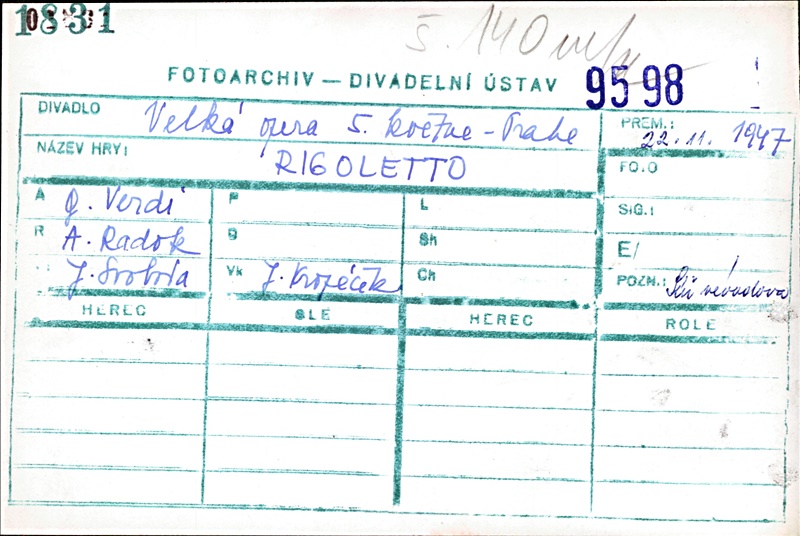 1831
Š. 140
FOTOARCHIV — DIVADELNÍ ÚSTAV 9598
DIVADLO Velká opera 5. května - Praha PREM.: 22.11. 1947
NÁZEV HRY: RIGOLETTO FO.O
A G. Verdi P L SIG.:
R A. Radok S Sh E/
J. Svoboda Vk J. Kropáček Ch POZN.:
HEREC OLE HEREC ROLE